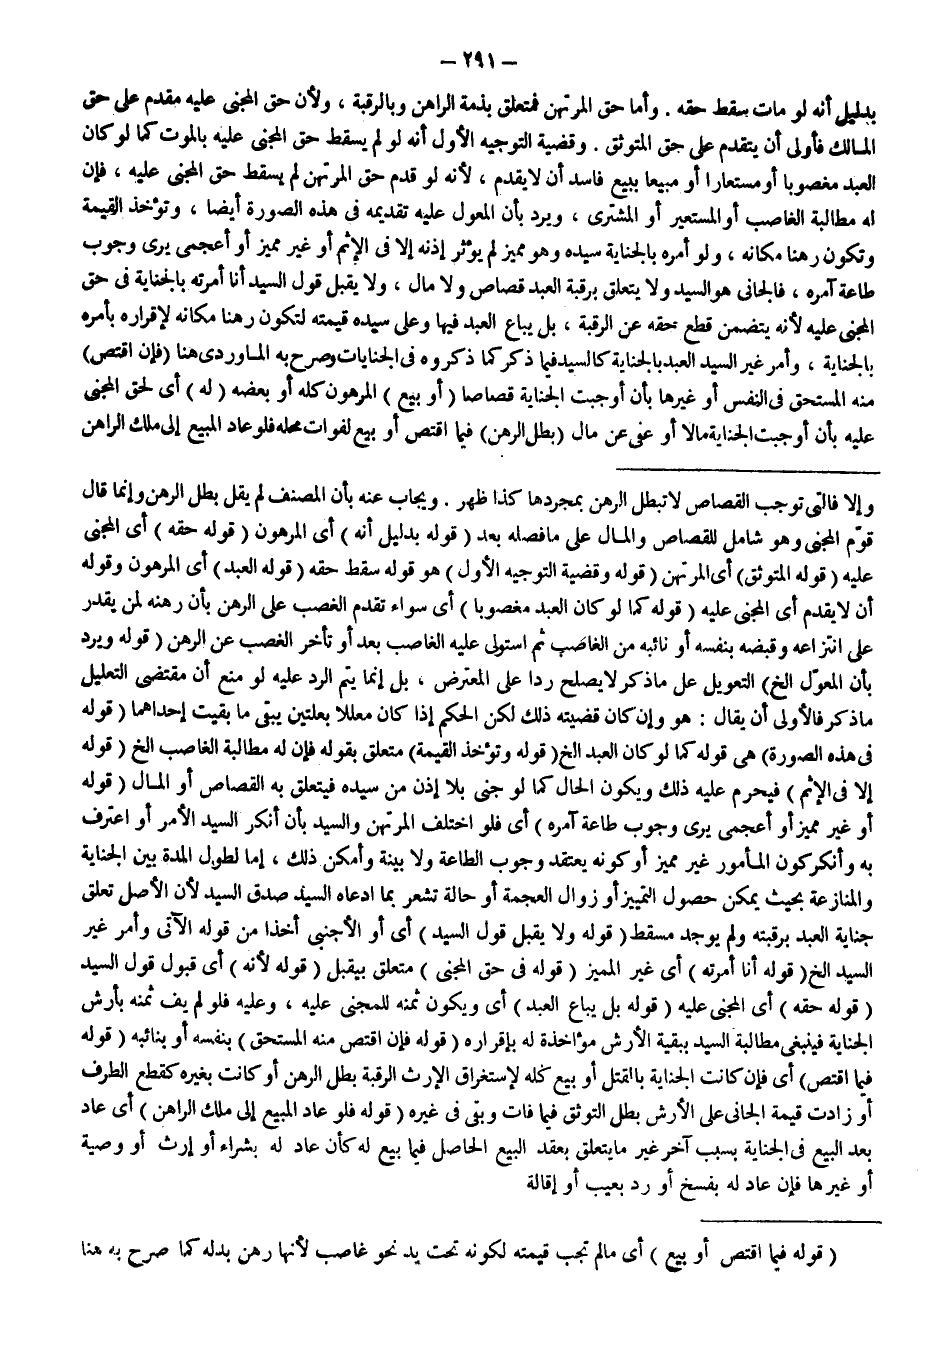 — ٢٩١ —
بدليل أنه لو مات سقط حقه . وأما حق المرتهن فمتعلق بذمة الراهن وبالرقبة ، ولأن حق المجنى عليه مقدم على حق
المالك فأولى أن يتقدم على حق المتوثق . وقضية التوجيه الأول أنه لو لم يسقط حق المجنى عليه بالموت كما لو كان
العبد مغصوبا أو مستعارا أو مبيعا ببيع فاسد أن لايقدم ، لأنه لو قدم حق المرتهن لم يسقط حق المجنى عليه ، فإن
له مطالبة الغاصب أو المستعير أو المشترى ، ويرد بأن المعول عليه تقديمه فى هذه الصورة أيضا ، وتؤخذ القيمة
وتكون رهنا مكانه ، ولو أمره بالجناية سيده وهو مميز لم يؤثر إذنه إلا فى الإثم أو غير مميز أو أعجمى يرى وجوب
طاعة آمره ، فالجانى هو السيد ولا يتعلق برقبة العبد قصاص ولا مال ، ولا يقبل قول السيد أنا أمرته بالجناية فى حق
المجنى عليه لأنه يتضمن قطع حقه عن الرقبة ، بل يباع العبد فيها وعلى سيده قيمته لتكون رهنا مكانه لإقراره بأمره
بالجناية ، وأمر غير السيد العبد بالجناية كالسيد فيما ذكر كما ذكروه فى الجنايات وصرح به الماوردى هنا (فإن اقتص)
منه المستحق فى النفس أو غيرها بأن أوجبت الجناية قصاصا ( أو بيع ) المرهون كله أو بعضه ( له ) أى لحق المجنى
عليه بأن أوجبت الجناية مالا أو عفى عن مال (بطل الرهن) فيما اقتص أو بيع لفوات محله فلو عاد المبيع إلى ملك الراهن
وإلا فالتى توجب القصاص لاتبطل الرهن بمجردها كذا ظهر . ويجاب عنه بأن المصنف لم يقل بطل الرهن وإنما قال
قوّم المجنى وهو شامل للقصاص والمال على مافصله بعد ( قوله بدليل أنه ) أى المرهون ( قوله حقه ) أى المجنى
عليه ( قوله المتوثق) أى المرتهن ( قوله وقضية التوجيه الأول ) هو قوله سقط حقه ( قوله العبد) أى المرهون وقوله
أن لايقدم أى المجنى عليه ( قوله كما لو كان العبد مغصوبا ) أى سواء تقدم الغصب على الرهن بأن رهنه لمن يقدر
على انتزاعه وقبضه بنفسه أو نائبه من الغاصب ثم استولى عليه الغاصب بعد أو تأخر الغصب عن الرهن ( قوله ويرد
بأن المعوّل الخ) التعويل عل ماذكر لايصلح ردا على المعترض ، بل إنما يتم الرد عليه لو منع أن مقتضى التعليل
ماذكر فالأولى أن يقال : هو وإن كان قضيته ذلك لكن الحكم إذا كان معللا بعلتين يبقى ما بقيت إحداهما ( قوله
فى هذه الصورة) هى قوله كما لو كان العبد الخ( قوله وتؤخذ القيمة) متعلق بقوله فإن له مطالبة الغاصب الخ ( قوله
إلا فى الإثم ) فيحرم عليه ذلك ويكون الحال كما لو جنى بلا إذن من سيده فيتعلق به القصاص أو المال ( قوله
أو غير مميز أو أعجمى يرى وجوب طاعة آمره ) أى فلو اختلف المرتهن والسيد بأن أنكر السيد الأمر أو اعترف
به وأنكر كون المأمور غير مميز أو كونه يعتقد وجوب الطاعة ولا بينة وأمكن ذلك ، إما لطول المدة بين الجناية
والمنازعة بحيث يمكن حصول التمييز أو زوال العجمة أو حالة تشعر بما ادعاه السيد صدق السيد لأن الأصل تعلق
جناية العبد برقبته ولم يوجد مسقط ( قوله ولا يقبل قول السيد ) أى أو الأجنبى أخذا من قوله الآتى وأمر غير
السيد الخ( قوله أنا أمرته ) أى غير المميز ( قوله فى حق المجنى ) متعلق بيقبل ( قوله لأنه ) أى قبول قول السيد
( قوله حقه ) أى المجنى عليه ( قوله بل يباع العبد ) أى ويكون ثمنه للمجنى عليه ، وعليه فلو لم يف ثمنه بأرش
الجناية فينبغى مطالبة السيد ببقية الأرش مؤاخذة له بإقراره ( قوله فإن اقتص منه المستحق ) بنفسه أو بنائبه ( قوله
فيما اقتص) أى فإن كانت الجناية بالقتل أو بيع كله لإستغراق الإرث الرقبة بطل الرهن أو كانت بغيره كقطع الطرف
أو زادت قيمة الجانى على الأرش بطل التوثق فيما فات وبقى فى غيره ( قوله فلو عاد المبيع إلى ملك الراهن ) أى عاد
بعد البيع فى الجناية بسبب آخر غير مايتعلق بعقد البيع الحاصل فيما بيع له كأن عاد له بشراء أو إرث أو وصية
أو غيرها فإن عاد له بفسخ أو رد بعيب أو إقالة
( قوله فيما اقتص أو بيع ) أى مالم تجب قيمته لكونه تحت يد نحو غاصب لأنها رهن بدله كما صرح به هنا